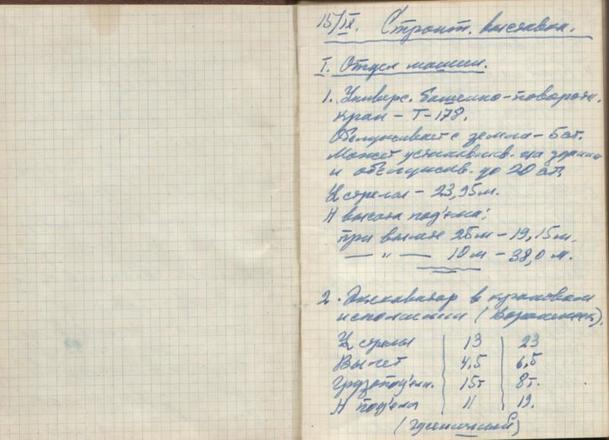 15/IX. Строит. выставка.
I. Отдел машин.
1. Универс. башенно-поворотн.
кран – Т-178.
Обслуживает с земли – 5 эт.
Может устанавлив. на здании
и обслужив. до 20 эт.
L стрелы – 23,95 м.
H высота под'ёма:
при вылете 25 м – 19,15 м.
— " — 10 м – 38,0 м.
2. Экскаватор в крановом
исполнении (Воронежец).
L стрелы 13 23
Вылет 4,5 6,5
Грузопод'ёмн. 15т 8т.
H под'ёма 11 19.
(гусеничный)